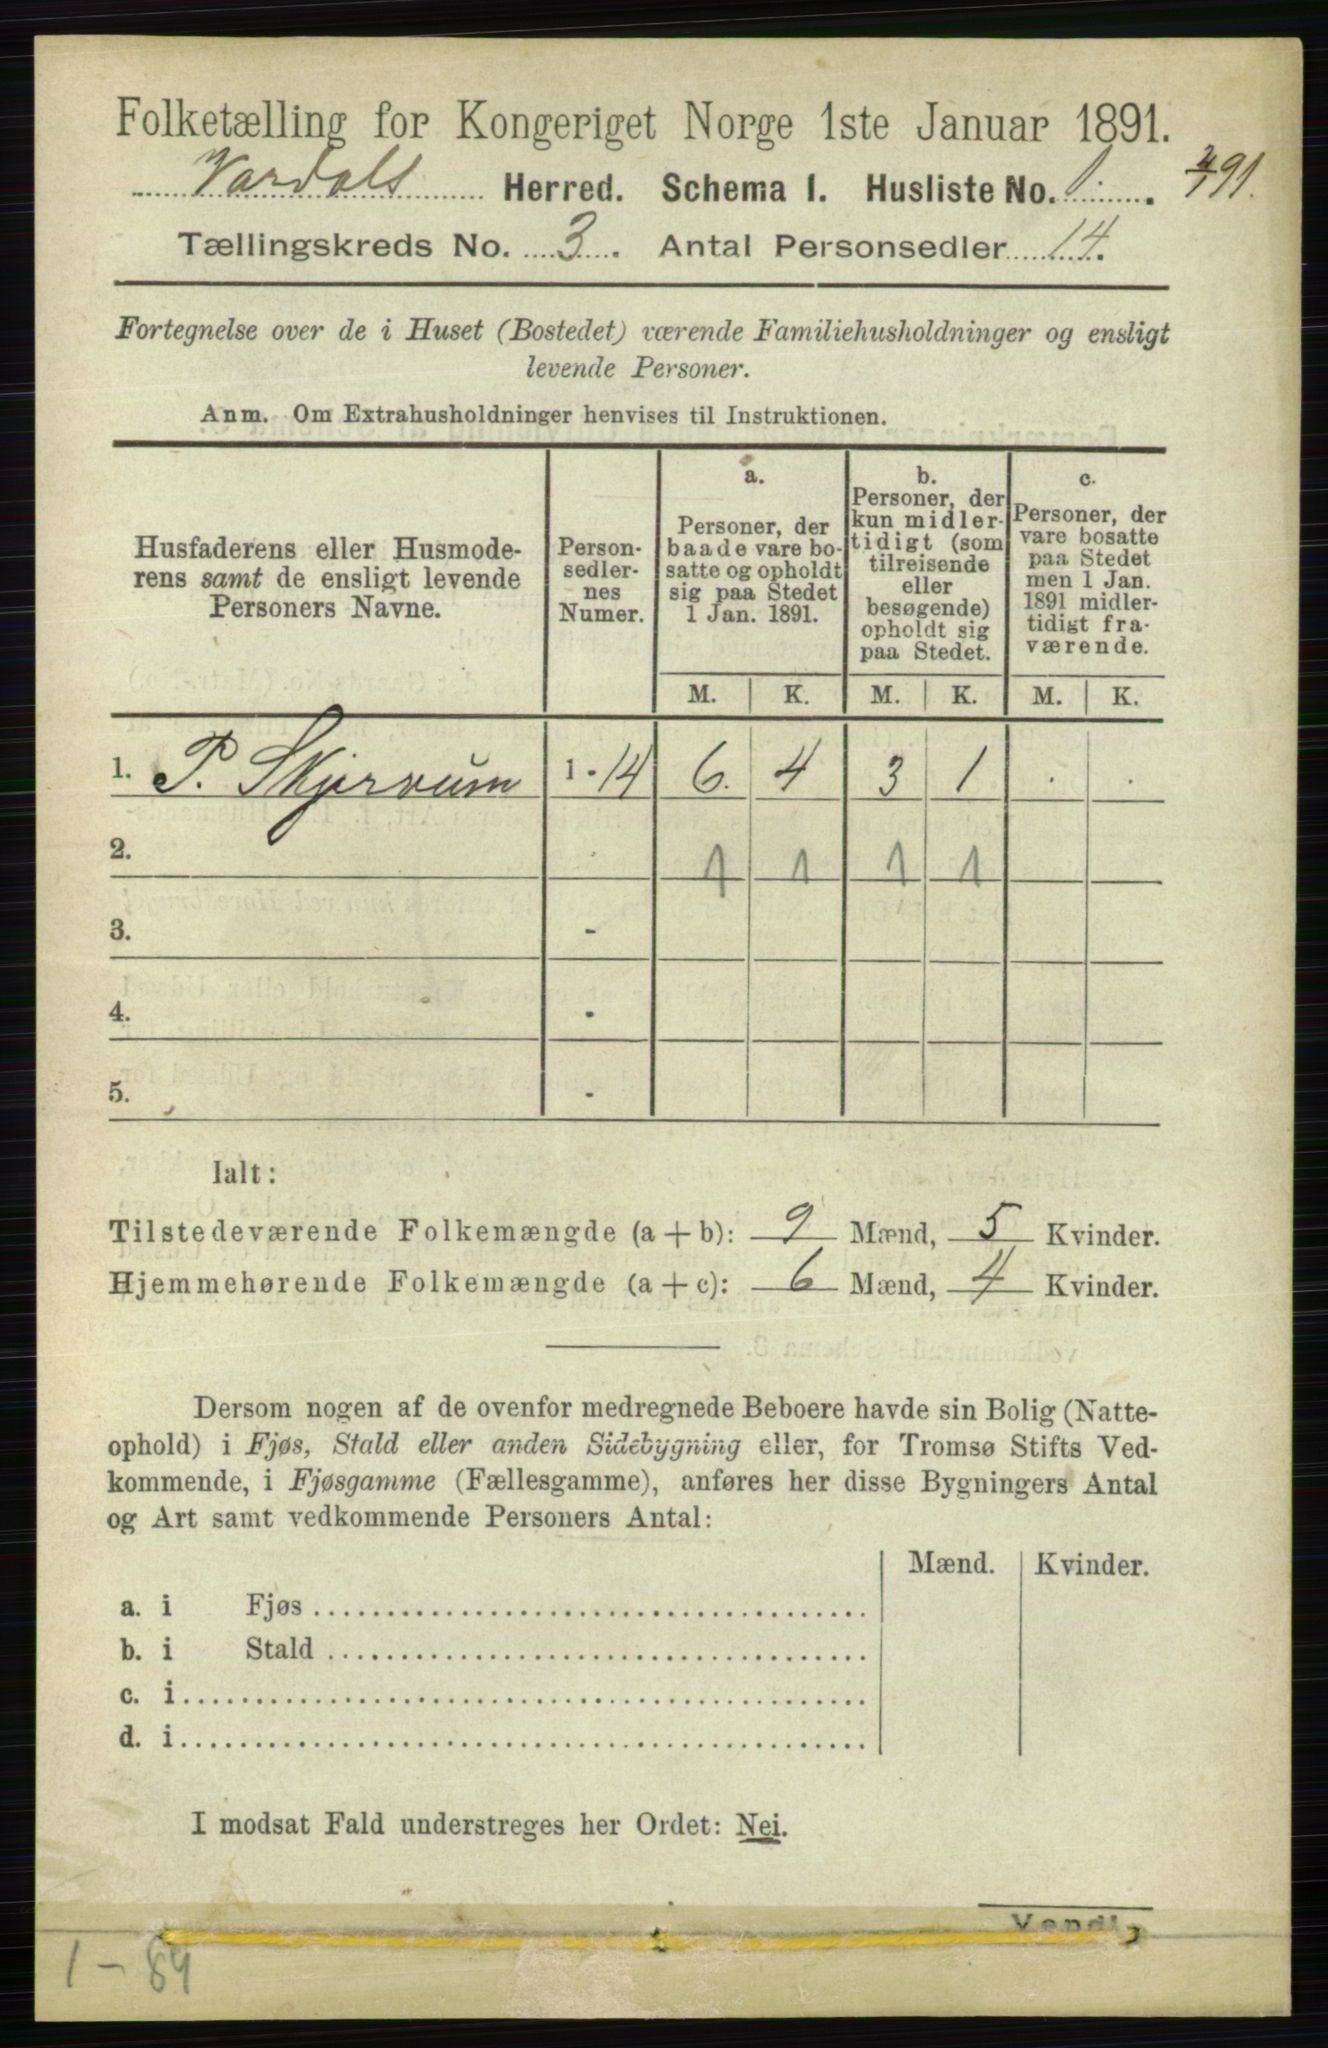 Folketælling for Kongeriget Norge 1ste Januar 1891.
Vardals Herred. Schema I. Husliste No. 1. 2/1 91.
Tællingskreds No. 3. Antal Personsedler 14.
Fortegnelse over de i Huset (Bostedet) værende Familiehusholdninger og ensligt
levende Personer.
Anm. Om Extrahusholdninger henvises til Instruktionen.
Husfaderens eller Husmode-
rens samt de ensligt levende
Personers Navne.
Person-
sedler-
nes
Numer.
a.
Personer, der
baade vare bo-
satte og opholdt
sig paa Stedet
1 Jan. 1891.
b.
Personer, der
kun midler-
tidigt (som
tilreisende
eller
besøgende)
opholdt sig
paa Stedet.
c.
Personer, der
vare bosatte
paa Stedet
men 1 Jan.
1891 midler-
tidigt fra-
værende.
M. K. M. K. M. K.
1. P. Skjervum 1 - 14 6. 4 3 1 . .
2. 1 1 1 1
3. -
4. -
5. -
Ialt:
Tilstedeværende Folkemængde (a + b): 9 Mænd, 5 Kvinder.
Hjemmehørende Folkemængde (a + c): 6 Mænd, 4 Kvinder.
Dersom nogen af de ovenfor medregnede Beboere havde sin Bolig (Natte-
ophold) i Fjøs, Stald eller anden Sidebygning eller, for Tromsø Stifts Ved-
kommende, i Fjøsgamme (Fællesgamme), anføres her disse Bygningers Antal
og Art samt vedkommende Personers Antal:
Mænd. Kvinder.
a. i Fjøs
b. i Stald
c. i
d. i
I modsat Fald understreges her Ordet: Nei.
Vend!
1 - 89